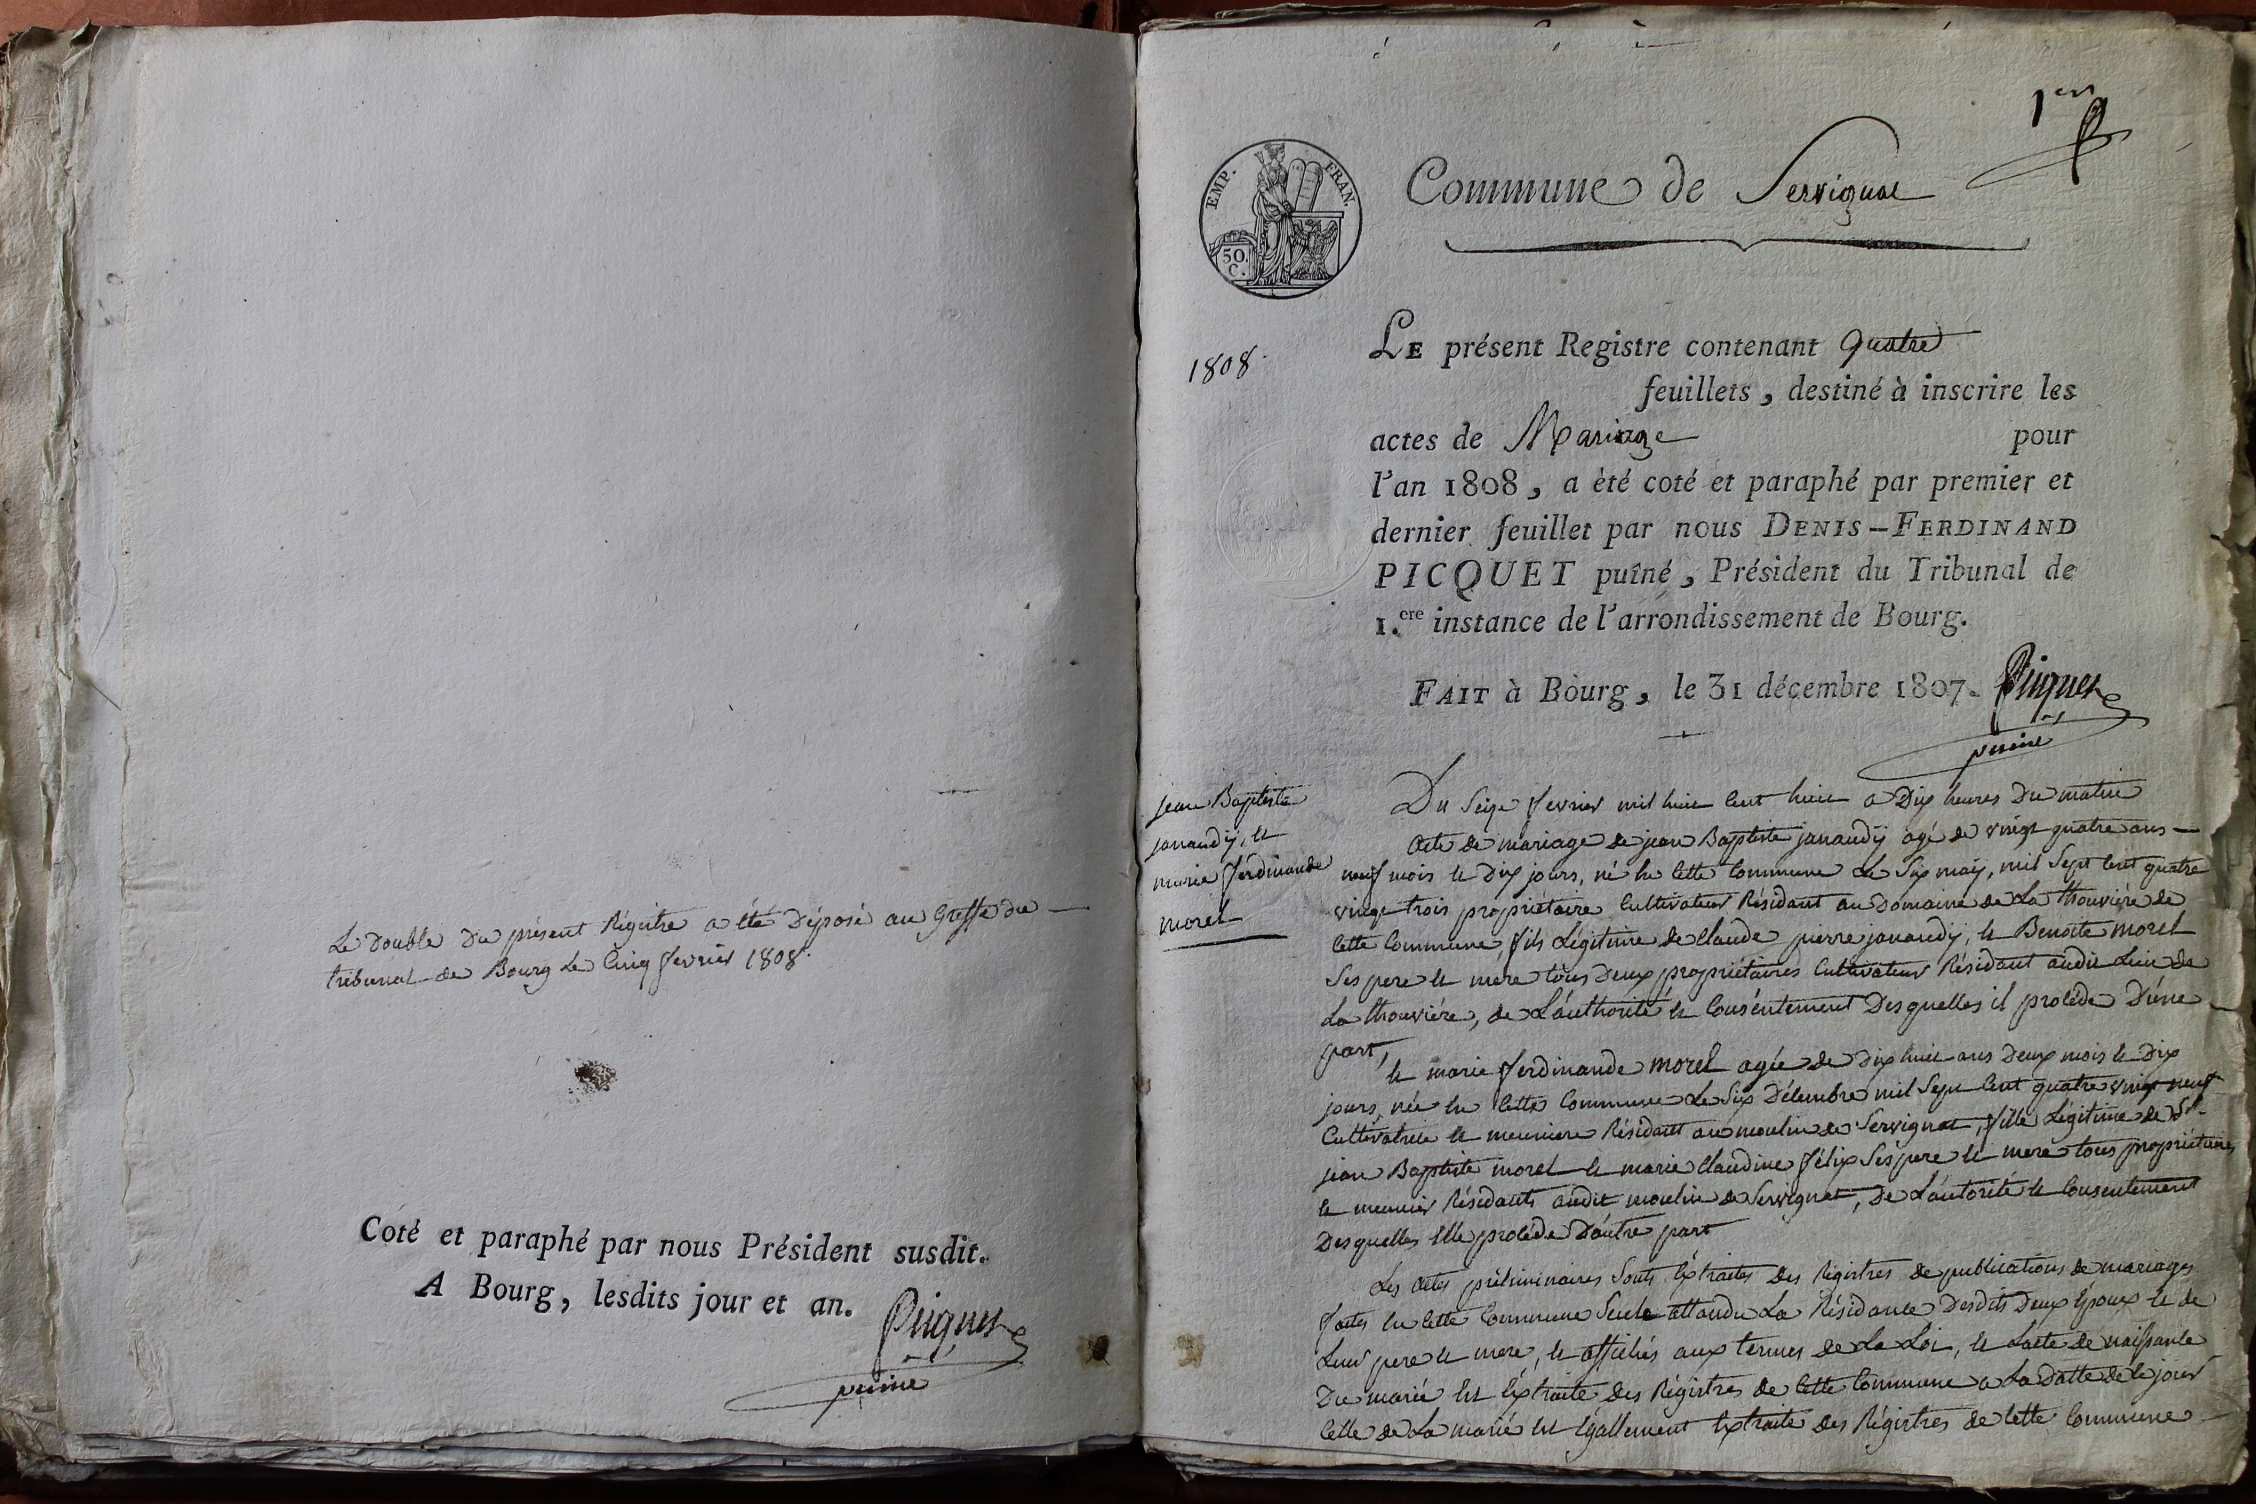 Le double du présent Régistre a été Déposé au Greffe du
tribunal de Bourg Le Cinq fevrier 1808.
Coté et paraphé par nous Président susdit.
A Bourg, lesdits jour et an.
Picquet
puiné
1er
EMP. FRAN.
50.
C.
Commune de Servignat
1808.
LE présent Registre contenant Quatre
feuillets, destiné à inscrire les
actes de Mariage pour
l'an 1808, a èté coté et paraphé par premier et
dernier feuillet par nous DENIS-FERDINAND
PICQUET puîné, Président du Tribunal de
1.ere instance de l'arrondissement de Bourg.
FAIT à Bourg, le 31 décembre 1807.
Picquet
puiné
jean Baptiste
janaudij, et
marie ferdinande
morel
Du Seize fevrier mil huit Cent huit a Dix heures Du matin
Acte de mariage de jean Baptiste janaudij agé de vingt quatre ans
neuf mois et Dix jours, né en Cette Commune Le Six maij, mil Sept Cent quatre
vingt trois propriétaire Cultivateur Résidant au Domaine de La Thouvière de
Cette Commune, fils Légitime de Claude pierre janaudij, et Benoite morel
Ses pere et mere tous Deux propriétaires Cultivateurs Résidant audit Lieu de
La Thouvière, de L'authorité et Consentement Desquelles il procéde D'une
part,
et marie ferdinande morel agée de Dix huit ans Deux mois et Dix
jours, née en Cette Commune Le Six Décembre mil Sept Cent quatre vingt neuf
Cultivatrice et meuniere Résidant au moulin de Servignat, fille Légitime de Sr.
jean Baptiste morel et marie Claudine félix Ses pere et mere tous propriétaires
et meunier Résidants audit moulin de Servignat, De L'autorité et Consentement
Desquelles Elle procéde D'autre part
Les Actes préliminaires Sonts Extraites Des Régistres de publications de mariages
faites en Cette Commune Seule attandu La Résidance Desdits Deux Epoux et de
Leurs pere et mere, et affichés aux termes de La Loi, et L'acte de naissance
Du marié Est Extraite des Régistres de Cette Commune a La Datte de Ce jour
Celle de La marié Est Egallement Extraite des Régistres de Cette Commune